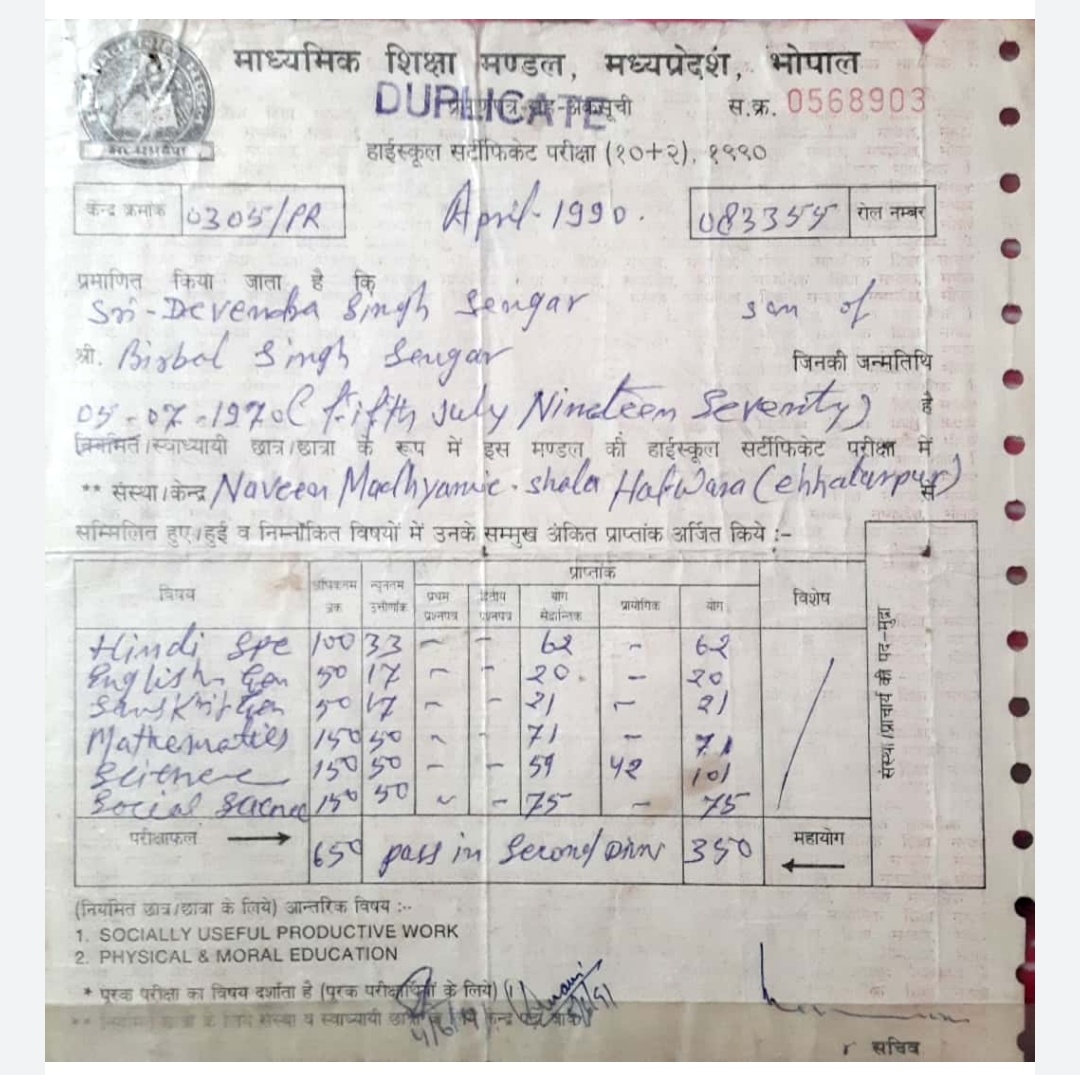 माध्यमिक शिक्षा मण्डल, मध्यप्रदेश, भोपाल
DUPLICATE
स.क्र. 0568903
हाईस्कूल सर्टीफिकेट परीक्षा (१०+२), १९९०
केन्द्र क्रमांक 0305/PR April-1990. 083354 रोल नम्बर
प्रमाणित किया जाता है कि
Sri-Devendra Singh Sengar son of
श्री. Birbal Singh Sengar जिनकी जन्मतिथि
05-07-1970 (fifth July Nineteen Seventy) है
नियमित/स्वाध्यायी छात्र/छात्रा के रूप में इस मण्डल की हाईस्कूल सर्टीफिकेट परीक्षा में
** संस्था/केन्द्र Naveen Madhyamic. shala Hatwara (chhatarpur) से
सम्मिलित हुए/हुई व निम्नांकित विषयों में उनके सम्मुख अंकित प्राप्तांक अर्जित किये :-
विषय अधिकतम अंक न्यूनतम उत्तीर्णांक प्राप्तांक विशेष
प्रथम प्रश्नपत्र द्वितीय प्रश्नपत्र योग सैद्धान्तिक प्रायोगिक योग
Hindi Spe 100 33 - - 62 - 62
English Gen 50 17 - - 20. - 20
Sanskrit Gen 50 17 - - 21 - 21
Mathematics 150 50 - - 71 - 71
Science 150 50 - - 59 42 101
Social Science 150 50 - - 75 - 75
परीक्षाफल → 650 pass in Second Divn 350 महायोग ←
संस्था/प्राचार्य की पद-मुद्रा
(नियमित छात्र/छात्रा के लिये) आन्तरिक विषय :-
1. SOCIALLY USEFUL PRODUCTIVE WORK
2. PHYSICAL & MORAL EDUCATION
* पूरक परीक्षा का विषय दर्शाता है (पूरक परीक्षार्थियों के लिये)
सचिव